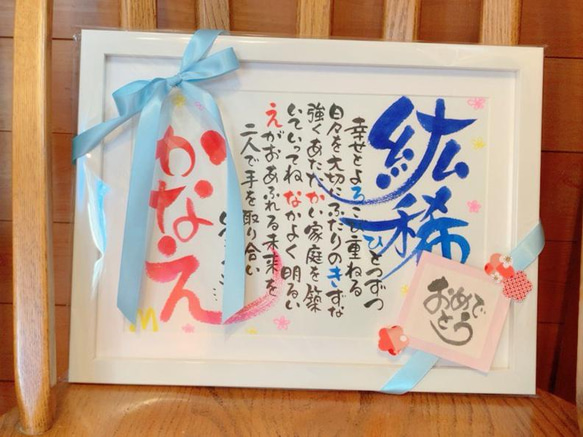 紘稀
ひとつずつ
幸せとよろこび重ねる
日々を大切にふたりのきずな
強くあたたかい家庭を築
いていってねなかよく明るい
えがおあふれる未来を
二人で手を取り合い
かなえ
おめで
とう